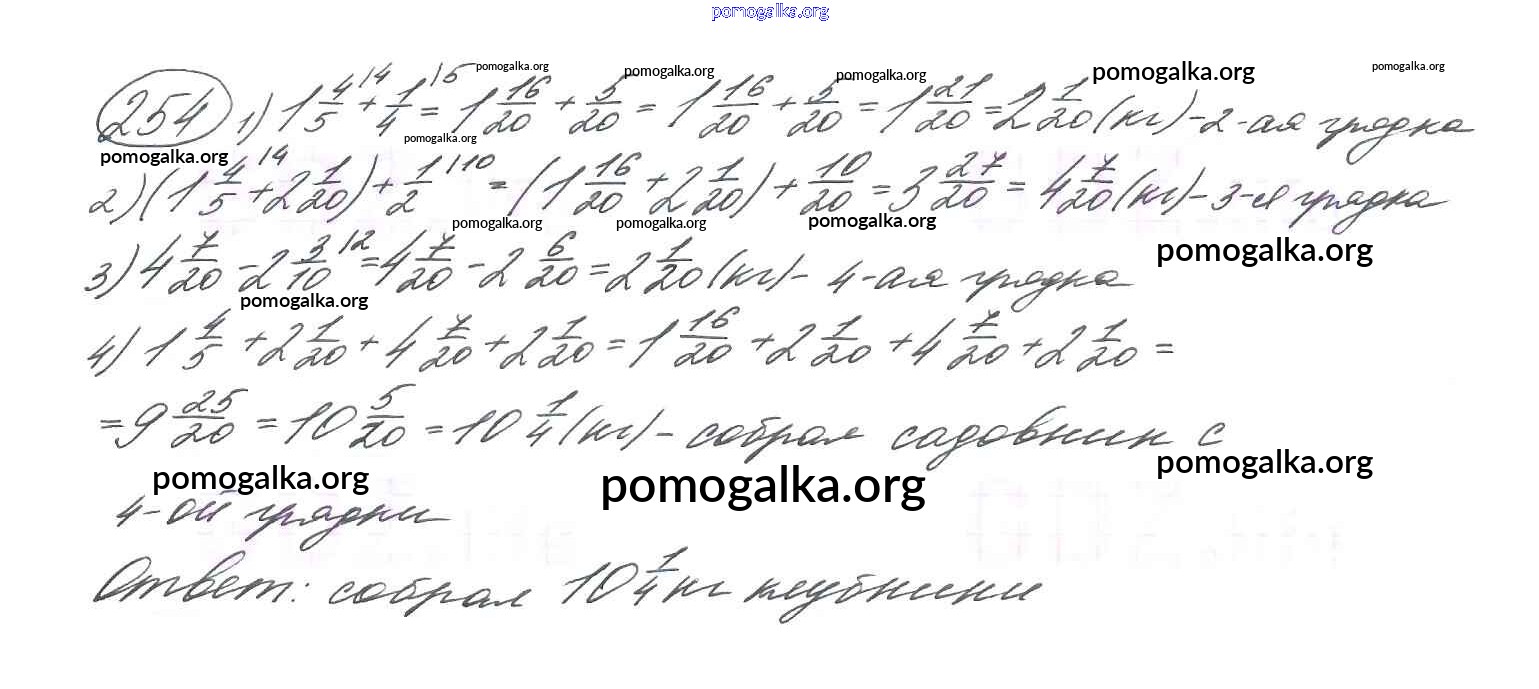 pomogalka.org
254 1) 1 4/5 |4 + 1/4 |5 = 1 16/20 + 5/20 = 1 16/20 + 5/20 = 1 21/20 = 2 1/20 (кг) - 2-ая грядка
pomogalka.org pomogalka.org pomogalka.org pomogalka.org pomogalka.org
pomogalka.org pomogalka.org
2) (1 4/5 |4 + 2 1/20) + 1/2 |10 = (1 16/20 + 2 1/20) + 10/20 = 3 27/20 = 4 7/20 (кг) - 3-ья грядка
pomogalka.org pomogalka.org pomogalka.org
3) 4 7/20 - 2 3/10 |2 = 4 7/20 - 2 6/20 = 2 1/20 (кг) - 4-ая грядка
pomogalka.org
pomogalka.org
4) 1 4/5 + 2 1/20 + 4 7/20 + 2 1/20 = 1 16/20 + 2 1/20 + 4 7/20 + 2 1/20 =
= 9 25/20 = 10 5/20 = 10 1/4 (кг) - собрал садовник с
pomogalka.org pomogalka.org pomogalka.org
4-ой грядки
Ответ: собрал 10 1/4 кг клубники